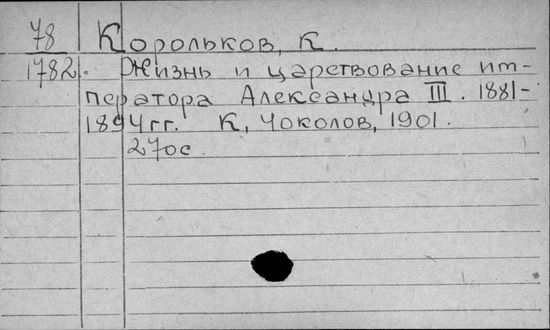 78 Корольков, К.
1782. Жизнь и царствование им-
ператора Александра III. 1881-
1894гг. К, Чоколов, 1901.
270с.